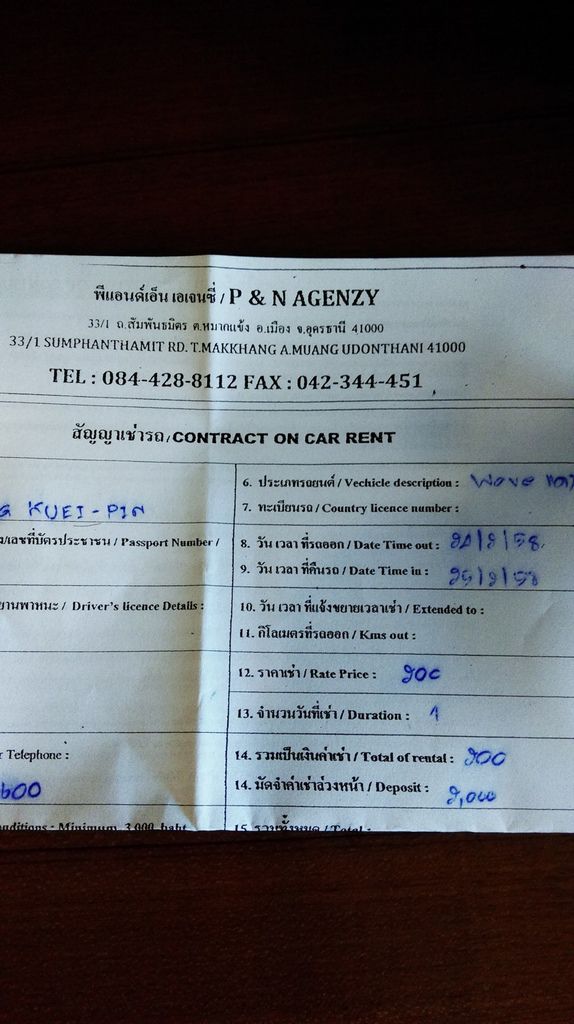 พีแอนด์เอ็น เอเจนซี่ / P & N AGENZY
33/1 ถ.สัมพันธมิตร ต.หมากแข้ง อ.เมือง จ.อุดรธานี 41000
33/1 SUMPHANTHAMIT RD. T.MAKKHANG A.MUANG UDONTHANI 41000
TEL : 084-428-8112 FAX : 042-344-451
สัญญาเช่ารถ/CONTRACT ON CAR RENT
KUEI-PIN
เลขที่บัตรประชาชน / Passport Number /
ยานพาหนะ / Driver's licence Details :
Telephone :
600
Minimum 3,000 baht
6. ประเภทรถยนต์ / Vechicle description : Wave
7. ทะเบียนรถ / Country licence number :
8. วัน เวลา ที่รถออก / Date Time out : 24/2/58
9. วัน เวลา ที่คืนรถ / Date Time in : 25/2/58
10. วัน เวลา ที่แจ้งขยายเวลาเช่า / Extended to :
11. กิโลเมตรที่รถออก / Kms out :
12. ราคาเช่า / Rate Price : 200
13. จำนวนวันที่เช่า / Duration : 1
14. รวมเป็นเงินค่าเช่า / Total of rental : 200
14. มัดจำค่าเช่าล่วงหน้า / Deposit : 2,000
15. รวมทั้งหมด / Total :